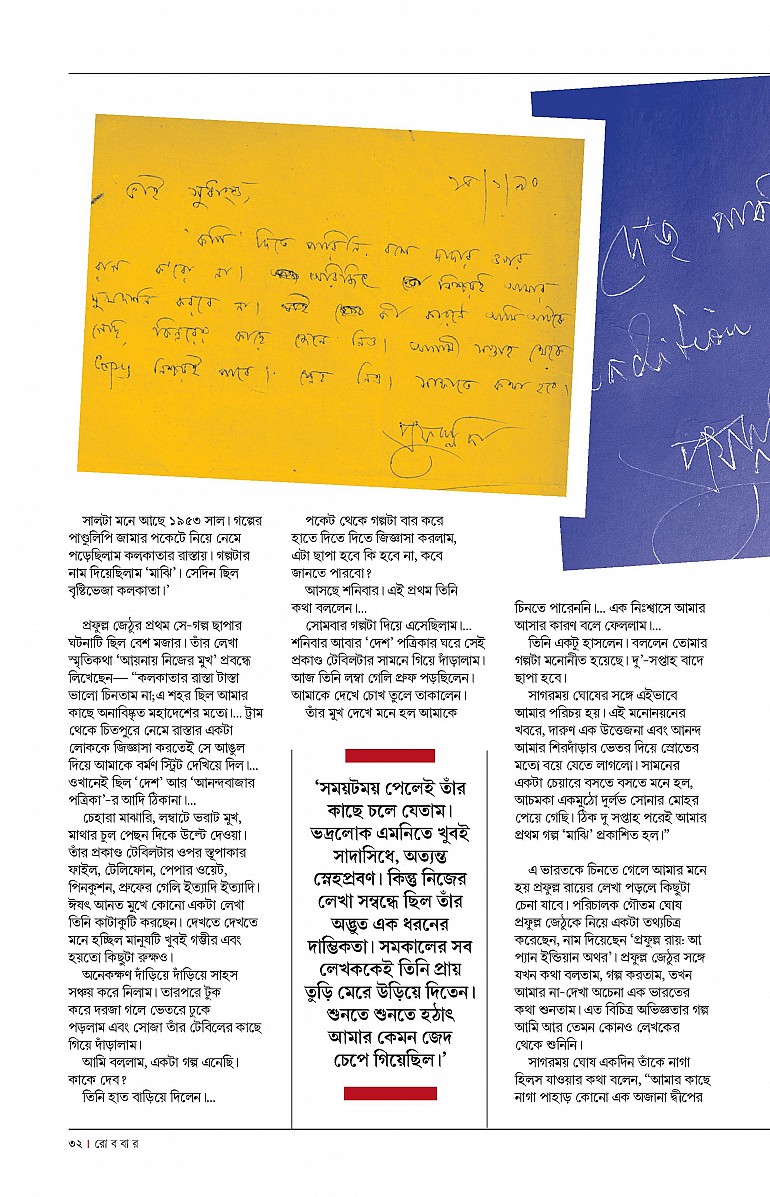 ভাই সুধাংশু,
'কপি' দিতে পারিনি বলে দাদার ওপর
রাগ ক'রো না। অরিজিৎ কিন্নরই আমার
মুখদর্শন করবে না। কী কারণে আমি আটকে
গেছি, কিন্নরের কাছে জেনে নিও। আগামী সপ্তাহ থেকে
Copy নিশ্চয়ই পাবে। স্নেহ নিও। সাক্ষাতে কথা হবে।
প্রফুল্লদা
ndition
সালটা মনে আছে ১৯৫৩ সাল। গল্পের
পাণ্ডুলিপি জামার পকেটে নিয়ে নেমে
পড়েছিলাম কলকাতার রাস্তায়। গল্পটার
নাম দিয়েছিলাম ‘মাঝি’। সেদিন ছিল
বৃষ্টিভেজা কলকাতা।’
প্রফুল্ল জেঠুর প্রথম সে-গল্প ছাপার
ঘটনাটি ছিল বেশ মজার। তাঁর লেখা
স্মৃতিকথা ‘আয়নায় নিজের মুখ’ প্রবন্ধে
লিখেছেন— “কলকাতার রাস্তা টাস্তা
ভালো চিনতাম না;এ শহর ছিল আমার
কাছে অনাবিষ্কৃত মহাদেশের মতো।... ট্রাম
থেকে চিতপুরে নেমে রাস্তার একটা
লোককে জিজ্ঞাসা করতেই সে আঙুল
দিয়ে আমাকে বর্মণ স্ট্রিট দেখিয়ে দিল।...
ওখানেই ছিল ‘দেশ’ আর ‘আনন্দবাজার
পত্রিকা’-র আদি ঠিকানা।...
চেহারা মাঝারি, লম্বাটে ভরাট মুখ,
মাথার চুল পেছন দিকে উল্টে দেওয়া।
তাঁর প্রকাণ্ড টেবিলটার ওপর স্তূপাকার
ফাইল, টেলিফোন, পেপার ওয়েট,
পিনকুশন, প্রুফের গেলি ইত্যাদি ইত্যাদি।
ঈষৎ আনত মুখে কোনো একটা লেখা
তিনি কাটাকুটি করছেন। দেখতে দেখতে
মনে হচ্ছিল মানুষটি খুবই গম্ভীর এবং
হয়তো কিছুটা রুক্ষও।
অনেকক্ষণ দাঁড়িয়ে দাঁড়িয়ে সাহস
সঞ্চয় করে নিলাম। তারপরে টুক
করে দরজা গলে ভেতরে ঢুকে
পড়লাম এবং সোজা তাঁর টেবিলের কাছে
গিয়ে দাঁড়ালাম।
আমি বললাম, একটা গল্প এনেছি।
কাকে দেব?
তিনি হাত বাড়িয়ে দিলেন।...
পকেট থেকে গল্পটা বার করে
হাতে দিতে দিতে জিজ্ঞাসা করলাম,
এটা ছাপা হবে কি হবে না, কবে
জানতে পারবো?
আসছে শনিবার। এই প্রথম তিনি
কথা বললেন।...
সোমবার গল্পটা দিয়ে এসেছিলাম।...
শনিবার আবার ‘দেশ’ পত্রিকার ঘরে সেই
প্রকাণ্ড টেবিলটার সামনে গিয়ে দাঁড়ালাম।
আজ তিনি লম্বা গেলি প্রুফ পড়ছিলেন।
আমাকে দেখে চোখ তুলে তাকালেন।
তাঁর মুখ দেখে মনে হল আমাকে
‘সময়টময় পেলেই তাঁর
কাছে চলে যেতাম।
ভদ্রলোক এমনিতে খুবই
সাদাসিধে, অত্যন্ত
স্নেহপ্রবণ। কিন্তু নিজের
লেখা সম্বন্ধে ছিল তাঁর
অদ্ভুত এক ধরনের
দাম্ভিকতা। সমকালের সব
লেখককেই তিনি প্রায়
তুড়ি মেরে উড়িয়ে দিতেন।
শুনতে শুনতে হঠাৎ
আমার কেমন জেদ
চেপে গিয়েছিল।’
চিনতে পারেননি।... এক নিঃশ্বাসে আমার
আসার কারণ বলে ফেললাম।...
তিনি একটু হাসলেন। বললেন তোমার
গল্পটা মনোনীত হয়েছে। দু’-সপ্তাহ বাদে
ছাপা হবে।
সাগরময় ঘোষের সঙ্গে এইভাবে
আমার পরিচয় হয়। এই মনোনয়নের
খবরে, দারুণ এক উত্তেজনা এবং আনন্দ
আমার শিরদাঁড়ার ভেতর দিয়ে স্রোতের
মতো বয়ে যেতে লাগলো। সামনের
একটা চেয়ারে বসতে বসতে মনে হল,
আচমকা একমুঠো দুর্লভ সোনার মোহর
পেয়ে গেছি। ঠিক দু সপ্তাহ পরেই আমার
প্রথম গল্প ‘মাঝি’ প্রকাশিত হল।”
এ ভারতকে চিনতে গেলে আমার মনে
হয় প্রফুল্ল রায়ের লেখা পড়লে কিছুটা
চেনা যাবে। পরিচালক গৌতম ঘোষ
প্রফুল্ল জেঠুকে নিয়ে একটা তথ্যচিত্র
করেছেন, নাম দিয়েছেন ‘প্রফুল্ল রায়: আ
প্যান ইন্ডিয়ান অথর’। প্রফুল্ল জেঠুর সঙ্গে
যখন কথা বলতাম, গল্প করতাম, তখন
আমার না-দেখা অচেনা এক ভারতের
কথা শুনতাম। এত বিচিত্র অভিজ্ঞতার গল্প
আমি আর তেমন কোনও লেখকের
থেকে শুনিনি।
সাগরময় ঘোষ একদিন তাঁকে নাগা
হিলস যাওয়ার কথা বলেন, “আমার কাছে
নাগা পাহাড় কোনো এক অজানা দ্বীপের
৩২ । রো ব বা র